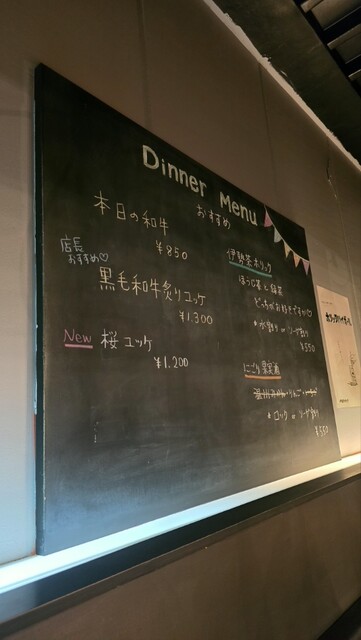 Dinner Menu
おすすめ
本日の和牛
¥850
店長
おすすめ♡
黒毛和牛炙りユッケ
¥1,300
New 桜ユッケ
¥1,200
伊勢茶ホリック
ほうじ茶と緑茶
どっちがお好きですか♡
*水割り or ソーダ割り
¥550
にごり果実酒
りんご
*ロック or ソーダ割り
¥550